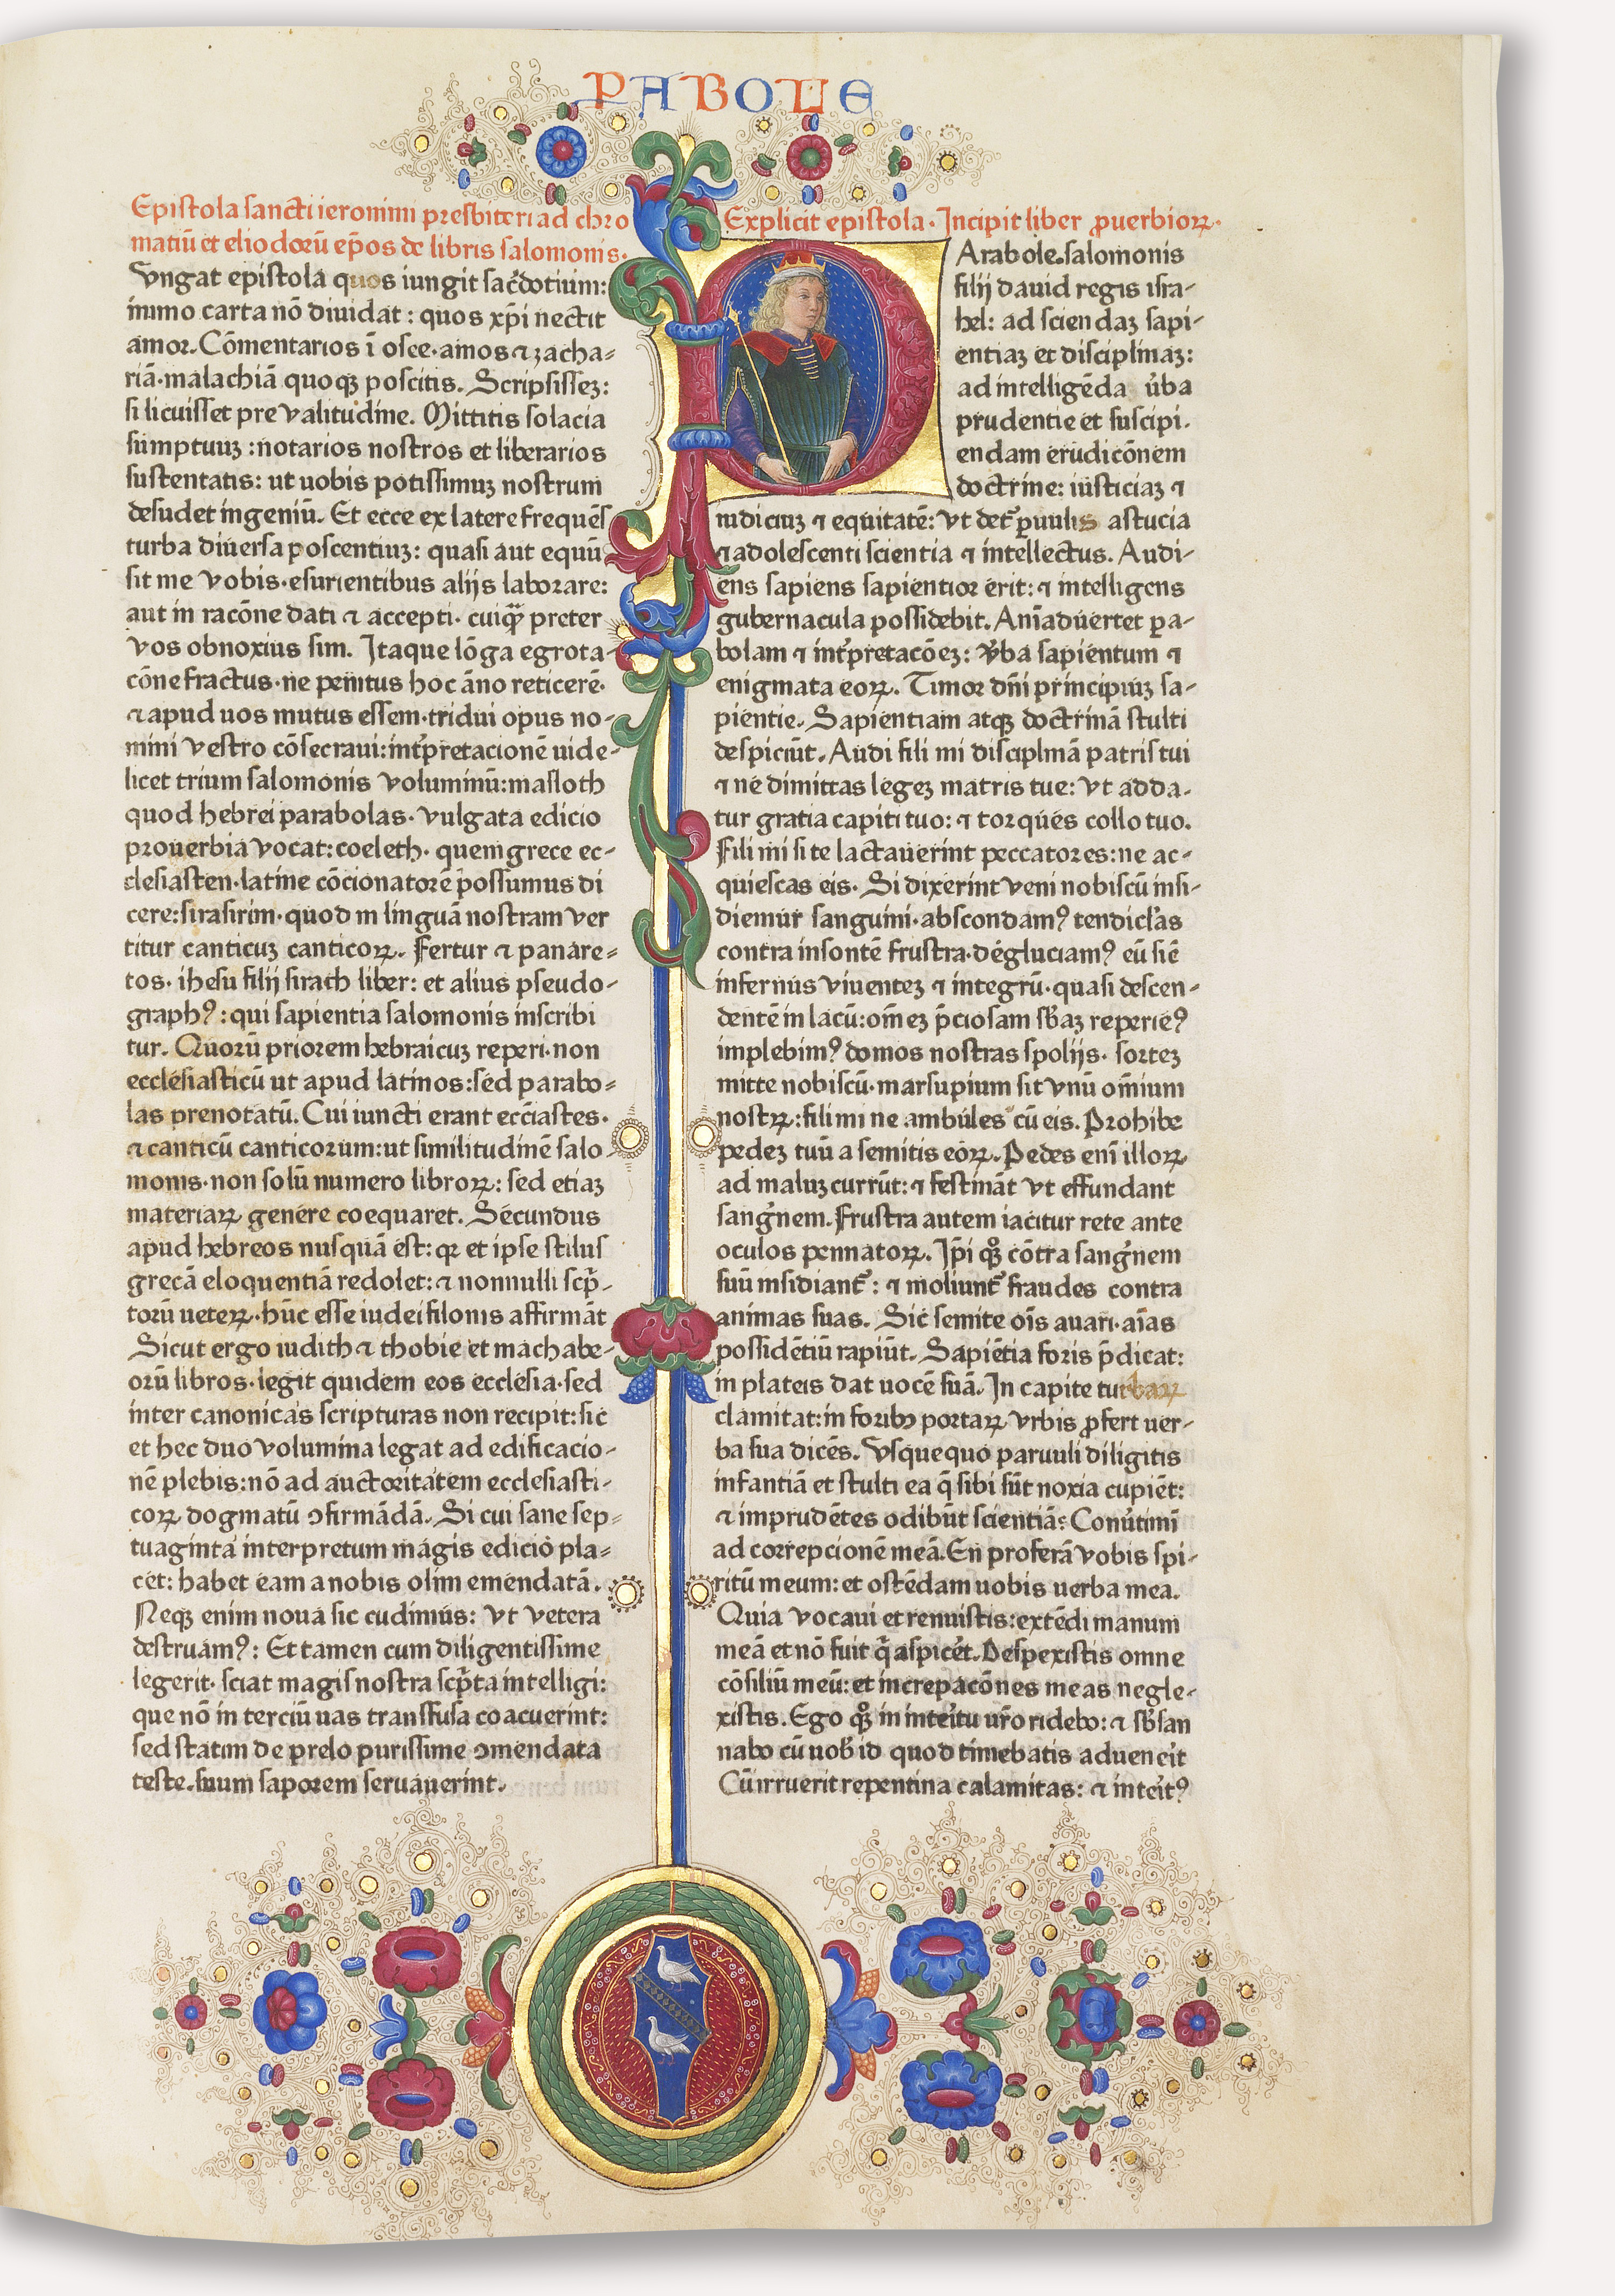 PABOLE
Epistola sancti ieronimi presbiteri ad chro
matiū et eliodorū ep̄os de libris salomonis.
Vngat epistola quos iungit sac̄dotium:
immo carta nō diuidat: quos xp̄i nectit
amor. Cōmentarios ī osce· amos ⁊ zacha-
riā· malachiā quoqꝫ poscitis. Scripsisseꝫ:
si licuisset pre valitudine. Mittitis solacia
sumptuuꝫ: notarios nostros et liberarios
sustentatis: ut uobis potissimuꝫ nostrum
desudet ingeniū. Et ecce ex latere frequēs
turba diuersa poscentiuꝫ: quasi aut equū
sit me vobis· esurientibus alijs laborare:
aut in racōne dati ⁊ accepti· cuiqꝫ̄ preter
vos obnoxius sim. Itaque lōga egrota-
cōne fractus· ne penitus hoc āno reticerē·
⁊ apud uos mutus essem· tridui opus no-
mini vestro cōsecraui: int̄pretacionē uide-
licet trium salomonis voluminū: masloth
quod hebrei parabolas· vulgata edicio
prouerbia vocat: coeleth· quem grece ec-
clesiasten· latine cōcionatorē possumus di
cere: sirasirim· quod in linguā nostram ver
titur canticuꝫ canticoꝝ. Fertur ⁊ panare-
tos· ihesu filij sirach liber: et alius pseudo-
graphꝰ: qui sapientia salomonis inscribi
tur. Quorū priorem hebraicuꝫ reperi· non
ecclesiasticū ut apud latinos: sed parabo-
las prenotatū. Cui iuncti erant ecc̄iastes·
⁊ canticū canticorum: ut similitudinē salo
monis· non solū numero libroꝝ: sed etiaꝫ
materiaꝝ genere coequaret. Secundus
apud hebreos nusquā est: qꝛ et ipse stilus
grecā eloquentiā redolet: ⁊ nonnulli scp̄-
torū ueteꝝ· hūc esse iudei filonis affirmāt
Sicut ergo iudith ⁊ thobie et machabe-
orū libros· legit quidem eos ecclesia· sed
inter canonicas scripturas non recipit: sic
et hec duo volumina legat ad edificacio-
nē plebis: nō ad auctoritatem ecclesiasti-
coꝝ dogmatū ꝯfirmādā. Si cui sane sep-
tuaginta interpretum magis edicio pla-
cet: habet eam a nobis olim emendatā.
Neqꝫ enim noua sic cudimus: vt vetera
destruamꝰ: Et tamen cum diligentissime
legerit· sciat magis nostra scp̄ta intelligi:
que nō in terciū uas transfusa coacuerint:
sed statim de prelo purissime ꝯmendata
teste. suum saporem seruauerint.
Explicit epistola· Incipit liber ꝓuerbioꝝ·
Arabole salomonis
filij dauid regis isra-
hel: ad sciendaꝫ sapi-
entiaꝫ et disciplinaꝫ:
ad intelligēda u̓ba
prudentie et suscipi·
endam erudicōnem
doctrine: iusticiaꝫ ⁊
iudiciuꝫ ⁊ equitatē: vt det̄ ꝑuulis astucia
⁊ adolescenti scientia ⁊ intellectus. Audi-
ens sapiens sapientior erit: ⁊ intelligens
gubernacula possidebit. Anīaduertet ꝑa-
bolam ⁊ int̄pretacōeꝫ: v̓ba sapientum ⁊
enigmata eoꝝ. Timor dn̄i principiuꝫ sa-
pientie. Sapientiam atqꝫ doctrinā stulti
despiciūt. Audi fili mi disciplinā patris tui
⁊ ne dimittas legeꝫ matris tue: vt adda·
tur gratia capiti tuo: ⁊ torques collo tuo.
Fili mi si te lactauerint peccatores: ne ac-
quiescas eis. Si dixerint veni nobiscū insi-
diemur sanguini· abscondamꝰ tendiclas
contra insontē frustra· degluciamꝰ eū siē
infernus viuenteꝫ ⁊ integrū· quasi descen-
dentē in lacū: om̄eꝫ p̄ciosam sb̄aꝫ reperieꝰ
implebimꝰ domos nostras spolijs· sorteꝫ
mitte nobiscū· marsupium sit vnū om̄ium
nostꝝ: fili mi ne ambules cū eis. Prohibe
pedeꝫ tuū a semitis eoꝝ. Pedes enī illoꝝ
ad maluꝫ currūt: ⁊ festināt vt effundant
sang̓nem. Frustra autem iacitur rete ante
oculos pennatoꝝ. Ip̄i qꝫ̊ cōtra sang̓nem
suū insidiant᷑: ⁊ moliunt᷑ fraudes contra
animas suas. Sic semite oīs auari· aīas
possidētiū rapiūt. Sapiētia foris p̄dicat:
in plateis dat uocē suā. In capite turbaꝝ
clamitat: in foribꝰ portaꝝ vrbis ꝓfert uer-
ba sua dicēs. Vsquequo paruuli diligitis
infantiā et stulti ea q̄ sibi sūt noxia cupiēt:
⁊ imprudētes odibūt scientiā: Conu̓timi
ad correpcionē meā. En proferā vobis spi-
ritū meum: et ostēdam uobis uerba mea.
Quia vocaui et renuistis: extēdi manum
meā et nō fuit q̄ aspicet. Despexistis omne
cōsiliū meū: et increpacōnes meas negle-
xistis. Ego qꝫ̊ in inteitu ur̄o ridebo: ⁊ sb̄san
nabo cū uob̓ id quod timebatis aduen̓it
Cū irruerit repentina calamitas: ⁊ inteitꝰ